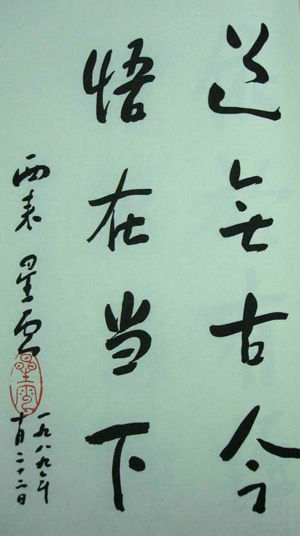 道無古今
悟在当下
西来 星雲
星雲
一九八九年
十月二十二日